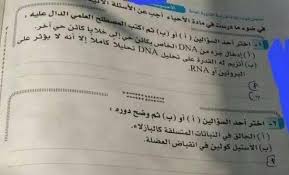 في ضوء ما درست في مادة الأحياء، أجب عن الأسئلة
١- اختر أحد السؤالين ( أ ) أو (ب) ثم اكتب المصطلح العلمي الدال عليه :
( أ ) إدخال جزء من DNA الخاص بكائن حي إلى خلايا كائن حي آخر.
(ب) إنزيم له القدرة على تحليل DNA تحليلاً كاملاً إلا أنه لا يؤثر على
البروتين أو RNA.
٢- اختر أحد السؤالين ( أ ) أو (ب) ثم وضح دوره :
( أ ) الحالق في النباتات المتسلقة كالبازلاء.
(ب) الأستيل كولين في انقباض العضلة.